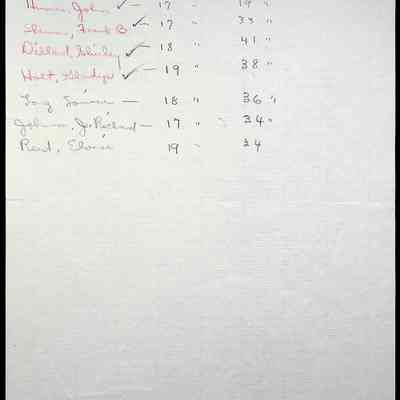 John ✓ — 17 " 19 "
Frank B ✓ — 17 " 33 "
Dillard, Shirley ✓ — 18 41 "
Holt, Gladys ✓ — 19 " 38 "
— 18 " 36 "
Johnson, J. Richard — 17 " 34 "
Reid, Eloise 19 " 34